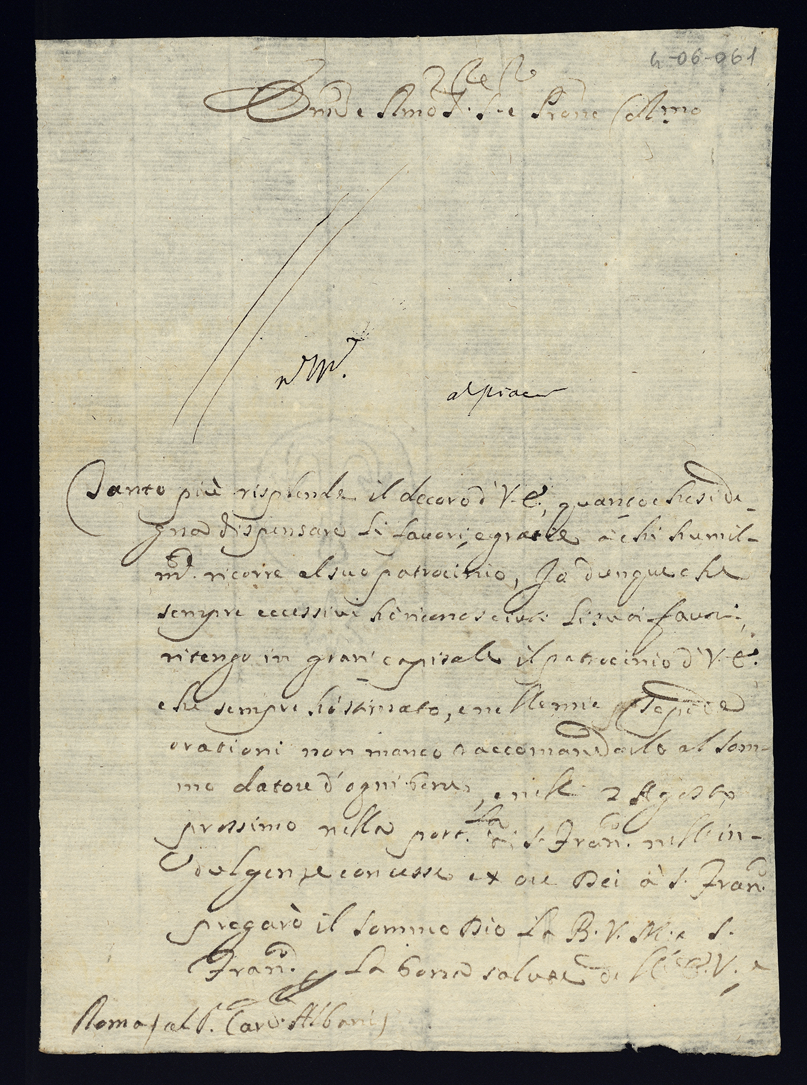 4-06-061
e Rmo S.r S.r e Prone Colmo
Tanto più risplende il decoro d'V. E., quanto che si de-
gna dispensare li favori, e gratie à chi humil-
mte. ricorre al suo patrocinio, Io dunque che
sempre eccessivi hò riconosciuti li suoi favori,
ritengo in gran capitale il patrocinio d'V. E.
che sempre hò stimato, e nelle mie tepide
orationi non manco raccomandarlo al som-
mo datore d'ogni bene, e nelli 2 Agosto
prossimo nella port.la di S. Fran.o nell'in-
dulgenze concesse ex ore Dei à S. Fran.o
pregarò il sommo Dio la B. V. M. e S.
Fran.o la bona salute di V. E.
Roma al S. Card. Albani